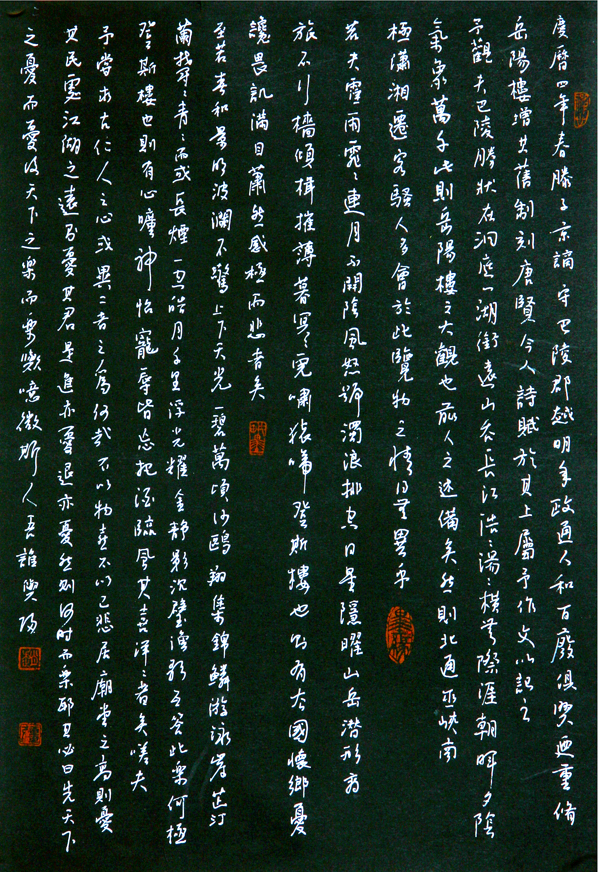 慶曆四年春滕子京謫守巴陵郡越明年政通人和百廢俱興迺重脩
岳陽樓增其舊制刻唐賢今人詩賦於其上屬予作文以記之
予觀夫巴陵勝狀在洞庭一湖銜遠山吞長江浩浩湯湯橫無際涯朝暉夕陰
氣象萬千此則岳陽樓之大觀也前人之述備矣然則北通巫峽南
極瀟湘遷客騷人多會於此覽物之情得無異乎
若夫霪雨霏霏連月不開陰風怒號濁浪排空日星隱曜山岳潛形商
旅不行檣傾楫摧薄暮冥冥虎嘯猿啼登斯樓也則有去國懷鄉憂
讒畏譏滿目蕭然感極而悲者矣
至若春和景明波瀾不驚上下天光一碧萬頃沙鷗翔集錦鱗游泳岸芷汀
蘭郁郁青青而或長煙一空皓月千里浮光耀金靜影沉璧漁歌互答此樂何極
登斯樓也則有心曠神怡寵辱皆忘把酒臨風其喜洋洋者矣嗟夫
予嘗求古仁人之心或異二者之為何哉不以物喜不以己悲居廟堂之高則憂
其民處江湖之遠則憂其君是進亦憂退亦憂然則何時而樂耶其必曰先天下
之憂而憂後天下之樂而樂歟噫微斯人吾誰與歸